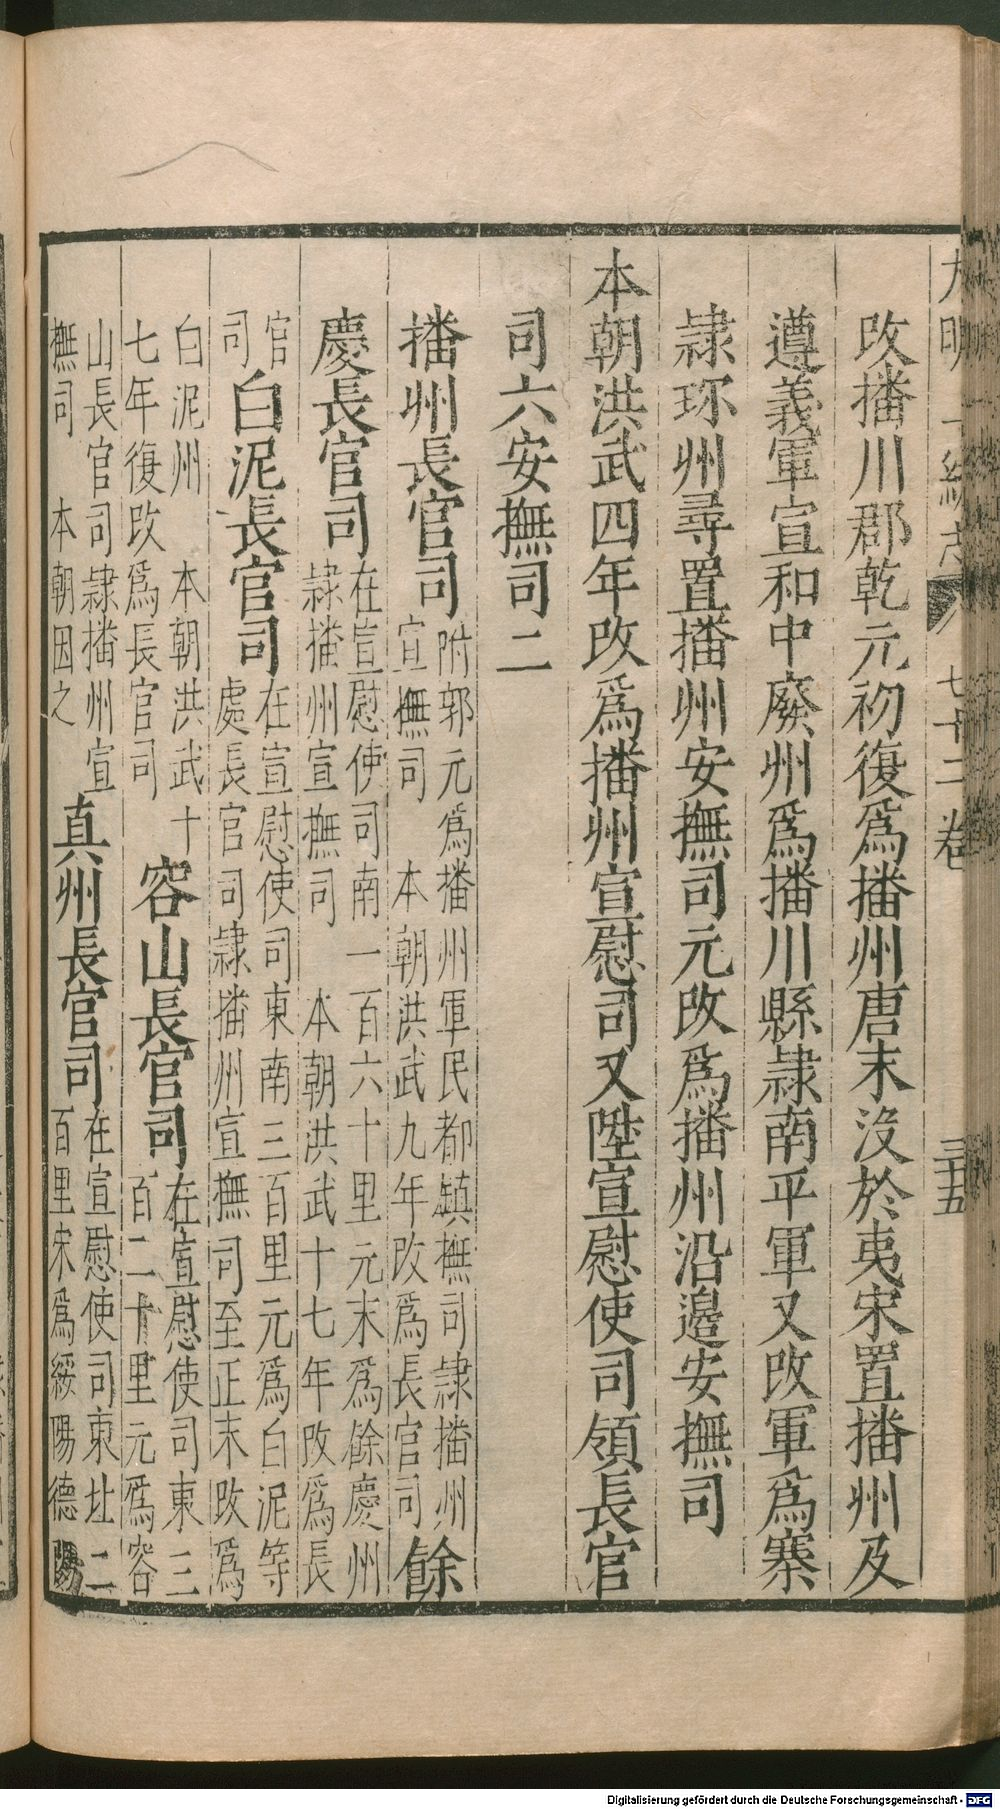 大明一統志 七十二卷 三五
改播川郡乾元初復爲播州唐末没於夷宋置播州及
遵義軍宣和中廢州爲播川縣隷南平軍又改軍爲寨
隷珍州尋置播州安撫司元改爲播州沿邊安撫司
本朝洪武四年改爲播州宣慰司又陞宣慰使司領長官
司六安撫司二
播州長官司
附郭元爲播州軍民都鎮撫司隷播州
宣撫司 本朝洪武九年改爲長官司
餘
慶長官司
在宣慰使司南一百六十里元末爲餘慶州
隷播州宣撫司 本朝洪武十七年改爲長
官
司
白泥長官司
在宣慰使司東南三百里元爲白泥等
處長官司隷播州宣撫司至正末改爲
白泥州 本朝洪武十
七年復改爲長官司
容山長官司
在宣慰使司東三
百二十里元爲容
山長官司隷播州宣
撫司 本朝因之
真州長官司
在宣慰使司東北二
百里宋爲綏陽德陽
Digitalisierung gefördert durch die Deutsche Forschungsgemeinschaft - DFG